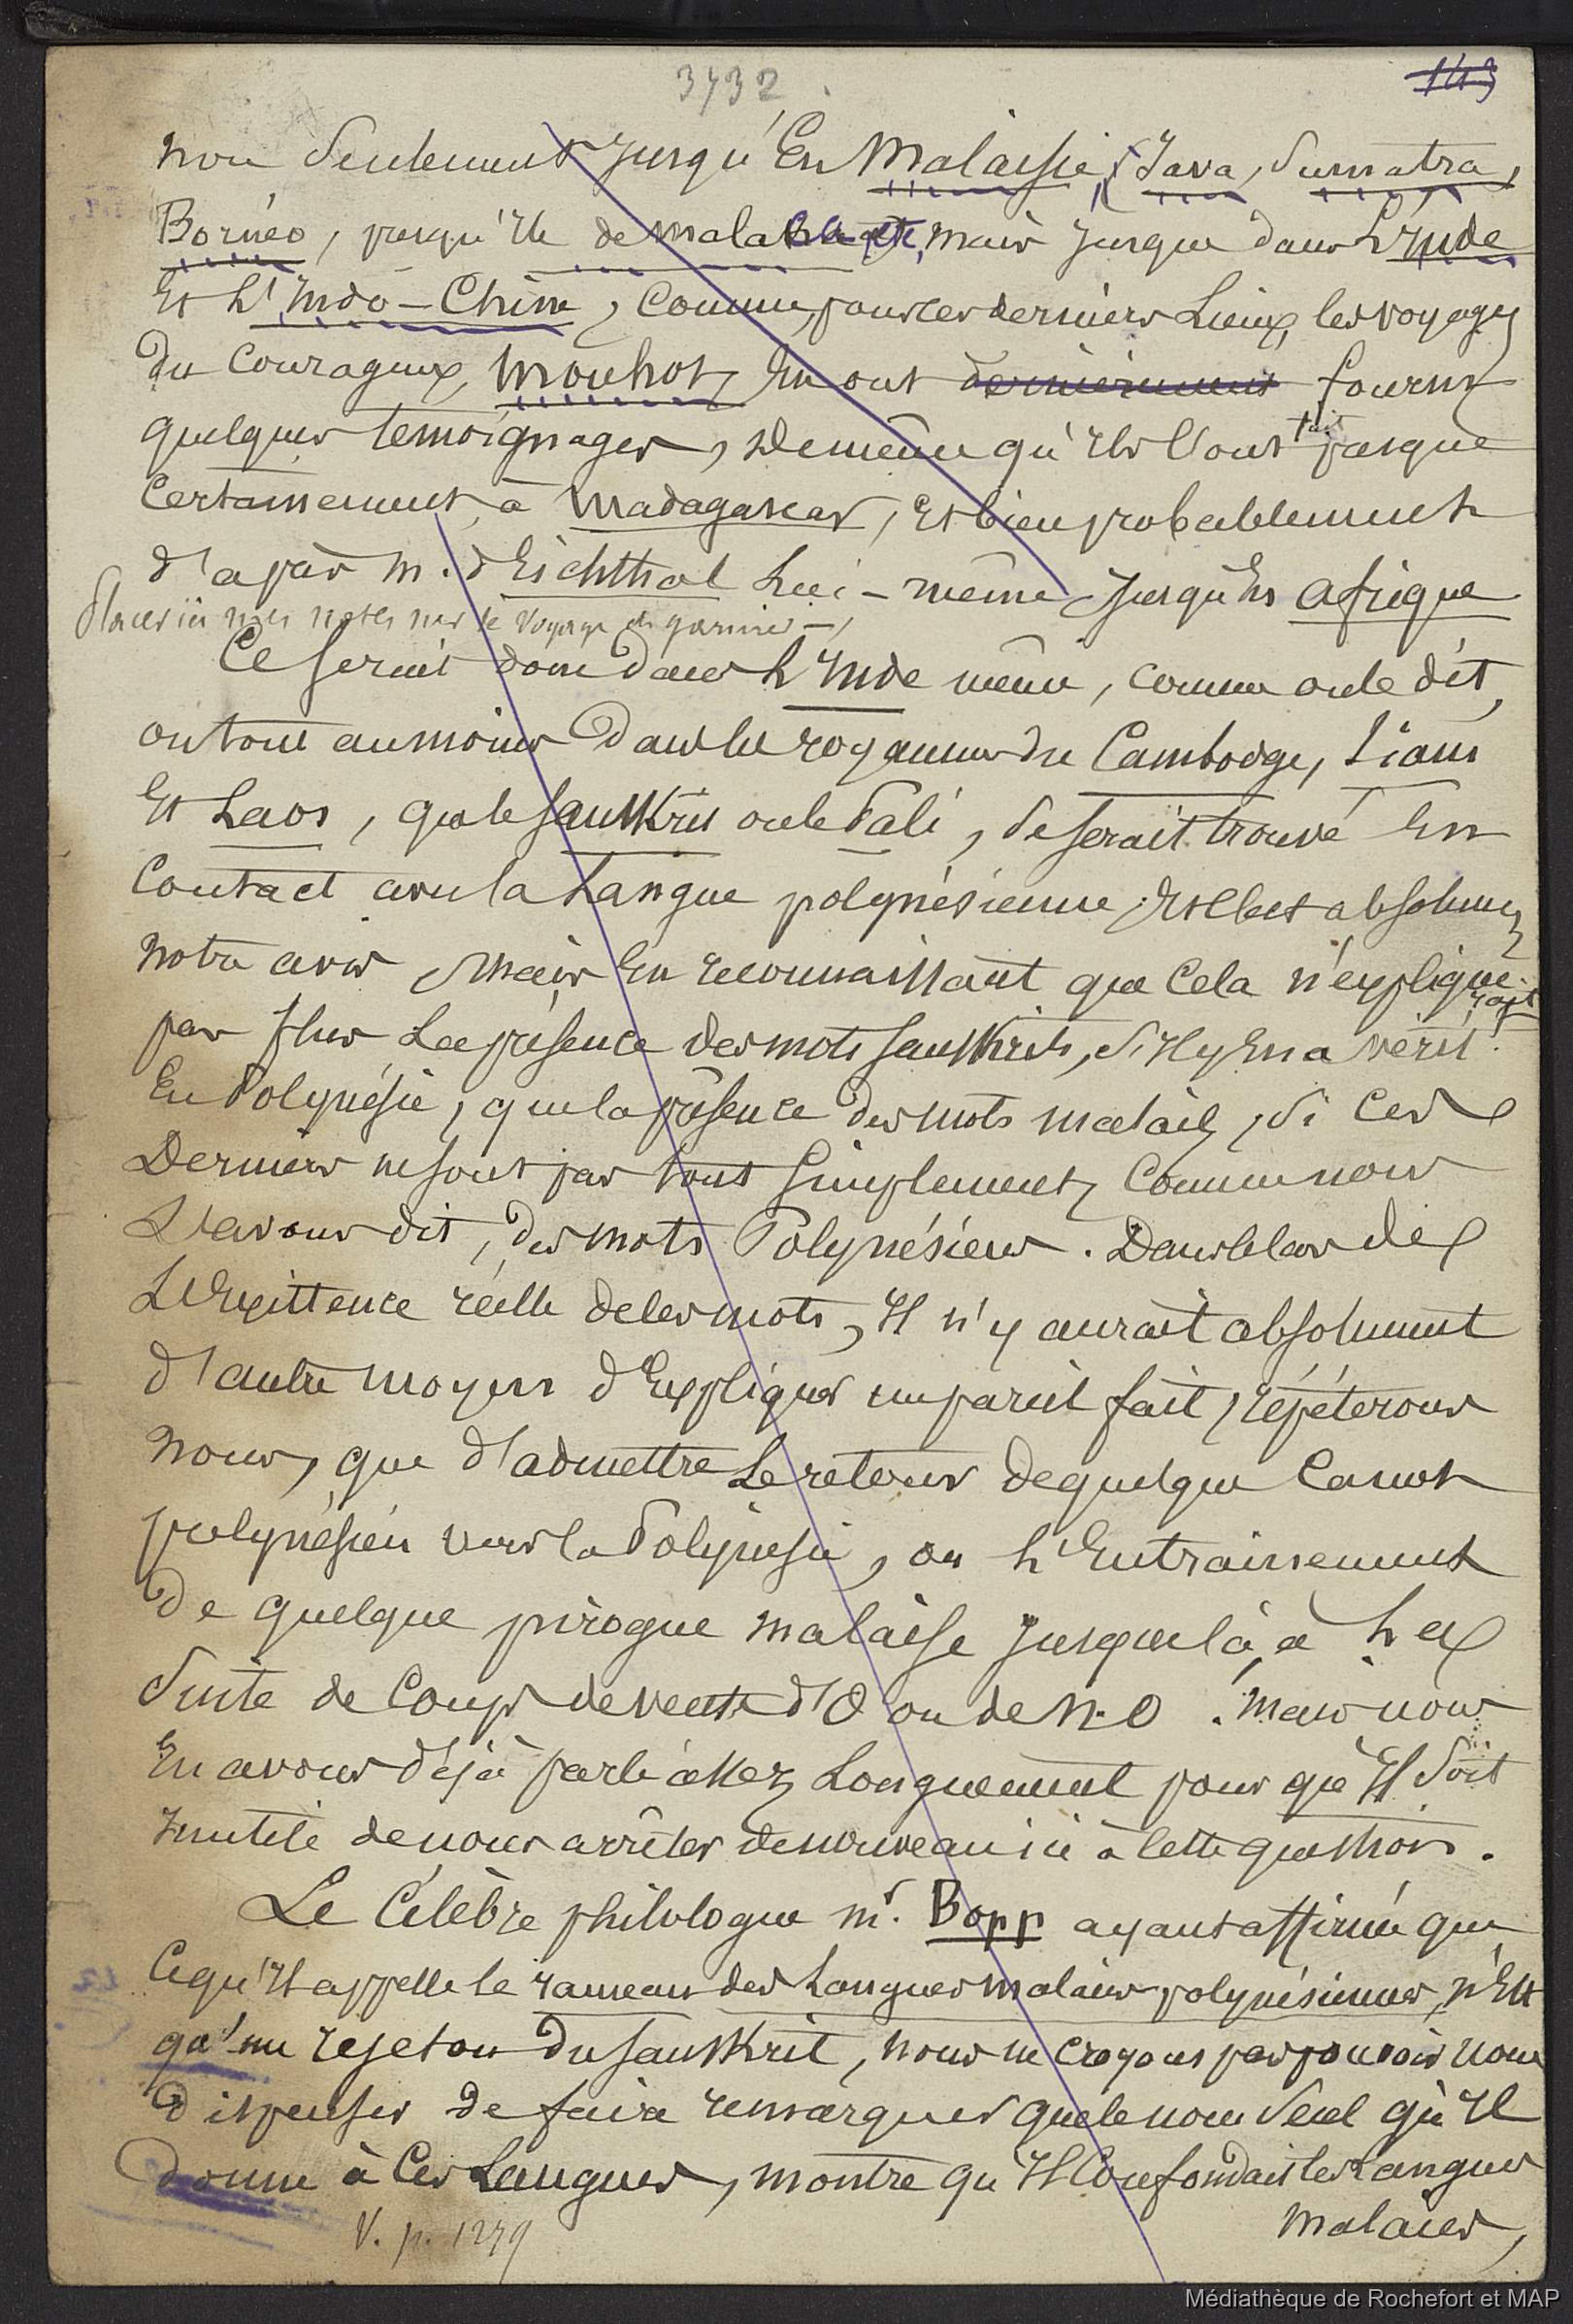 3432
143
non seulement jusqu'En Malaisie, (Java, Sumatra,
Bornéo, presqu'Ile de malaka, mais jusque dans L'Inde
Et L'Indo-Chine, comme, pour ces derniers Lieux, les voyages
du courageux Mouhot, En ont dernièrement fourni
quelques temoignages, de même qu'Ils l'ont fait jusque
certainement à Madagascar, Et bien probablement
d'après m. d'Eichthal Lui-même jusqu'En Afrique
Placer ici mes notes sur le voyage de garnier —,
Ce serait donc dans L'Inde même, comme on le dit,
ou tout au moins dans les royaumes du Cambodge, Siam
Et Laos, que le sanskrit ou le Pali, se serait trouvé En
contact avec la Langue polynésienne. Et c'est absolument
notre avis. Mais En reconnaissant que cela n'explique-
rait
pas plus La présence des mots sanskrits, s'Il y En a
En Polynésie, que la présence des mots malais, si ces
Derniers ne sont pas tout simplement, comme nous
L'avons dit, des mots Polynésiens. Dans le cas de
L'Existence réelle de ces mots, Il n'y aurait absolument
d'autre moyen d'Expliquer un pareil fait, répéterons
nous, que d'admettre Le retour de quelque canot
polynésien vers la Polynésie, ou L'Entrainement
De quelque pirogue malaise jusque là, à La
Suite de coups de vents d'O ou de N.O. Mais nous
En avons déjà parlé assez Longuement pour qu'Il soit
Inutile de nous arrêter de nouveau ici à cette question.
Le Célèbre philologue mr. Bopp ayant affirmé que
Ce qu'Il appelle le rameau des Langues malaies polynésiennes, n'Est
qu'un rejeton du sanskrit, nous ne croyons pas pouvoir nous
dispenser de faire remarquer que le nom seul qu'Il
donne à Ces Langues, montre qu'Il Confondait les Langues
malaies,
V. p. 1279
Médiathèque de Rochefort et MAP